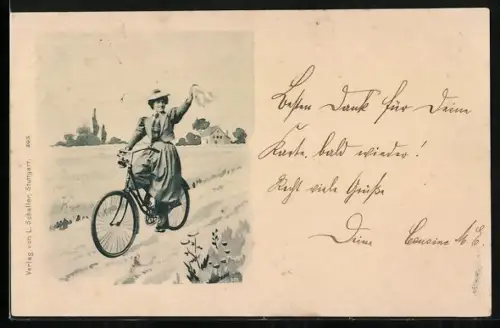 Besten Dank für Deine
Karte, bald wieder!
Recht viele Grüße
Deine Cousine M. E.
Verlag von L. Schaller, Stuttgart.